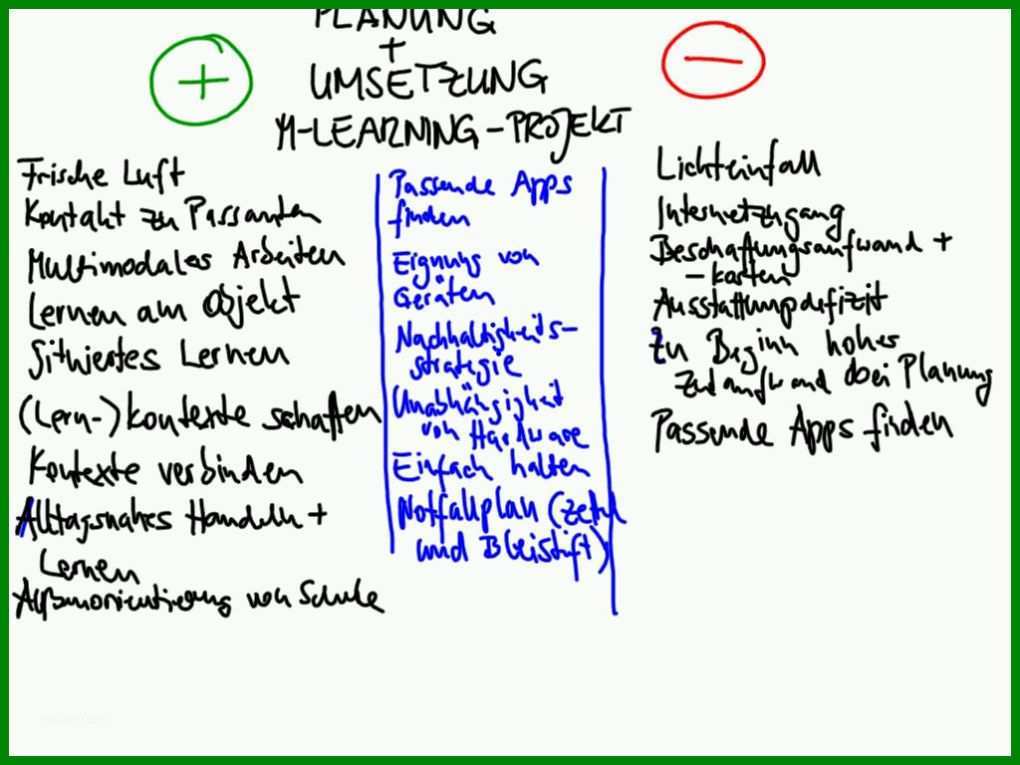 PLANUNG
+
UMSETZUNG
M-LEARNING-PROJEKT
+
Frische Luft
Kontakt zu Passanten
Multimodales Arbeiten
Lernen am Objekt
Situiertes Lernen
(Lern-)kontexte schaffen
Kontexte verbinden
Alltagsnahes Handeln +
Lernen
Außenorientierung von Schule
Passende Apps
finden
Eignung von
Geräten
Nachhaltigkeits-
strategie
Unabhängigkeit
von Hardware
Einfach halten
Notfallplan (Zettel
und Bleistift)
−
Lichteinfall
Internetzugang
Beschaffungsaufwand +
-kosten
Ausstattungsdefizit
Zu Beginn hoher
Zeitaufwand bei Planung
Passende Apps finden